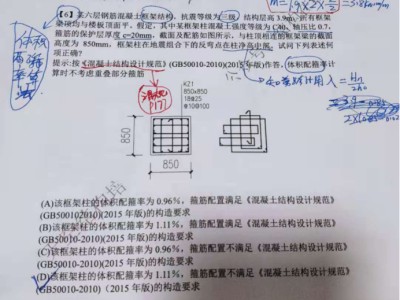 【6】某六层钢筋混凝土框架结构，抗震等级为三级，结构层高3.9m，所有框架
梁顶均与楼板顶面平。假定，其中某框架柱混凝土强度等级为C40，轴压比0.7，
箍筋的保护层厚度c=20mm，截面及配筋如图所示，与柱顶相连的框架梁的截面
高度为 850mm，框架柱在地震组合下的反弯点在柱净高中部。试问下列表述何
项正确？
提示：按《混凝土结构设计规范》(GB50010-2010)(2015年版)作答，体积配箍率计
算时不考虑重叠部分箍筋
KZ1
850x850
18⌀25
⌀10@100
850
850
(A)该框架柱的体积配箍率为 0.96%，箍筋配置满足《混凝土结构设计规范》
(GB50010-2010)(2015 年版)的构造要求
(B)该框架柱的体积配箍率为 1.11%，箍筋配置满足《混凝土结构设计规范》
(GB50010-2010)(2015 年版)的构造要求
(C)该框架柱的体积配箍率为 0.96%，箍筋配置不满足《混凝土结构设计规范》
(GB50010-2010)(2015 年版)的构造要求
(D)该框架柱的体积配箍率为 1.11%，箍筋配置不满足《混凝土结构设计规范》
GB50010-2010)（2015 年版)的构造要求